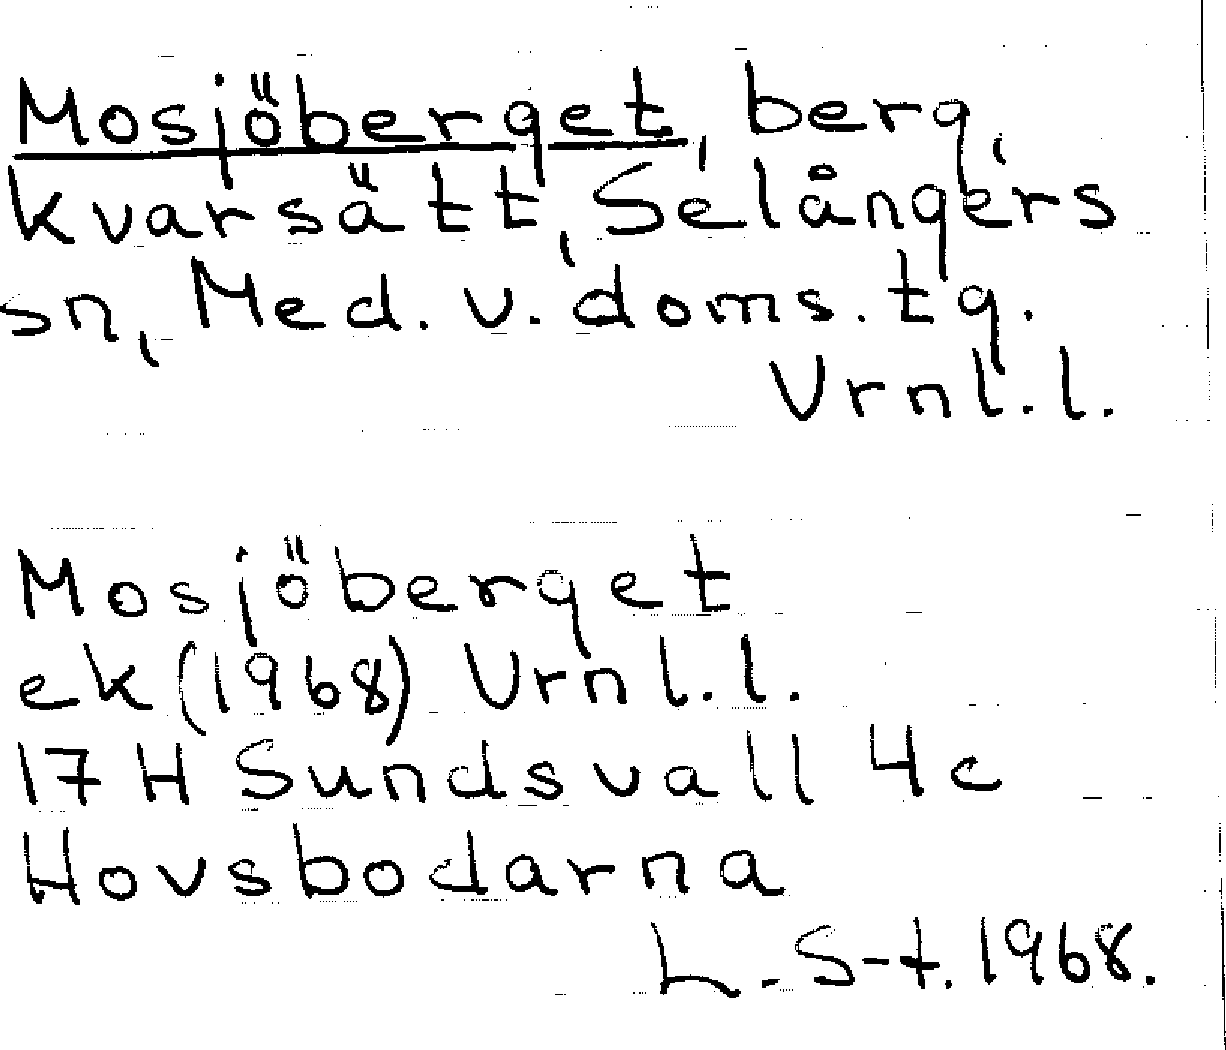 Mosjöberget, berg,
kvarsätt, Selångers
sn, Med. v. doms. tg.
Vrnl.l.
Mosjöberget
ek (1968) Vrnl.l.
17 H Sundsvall 4c
Hovsbodarna
L.S-t. 1968.